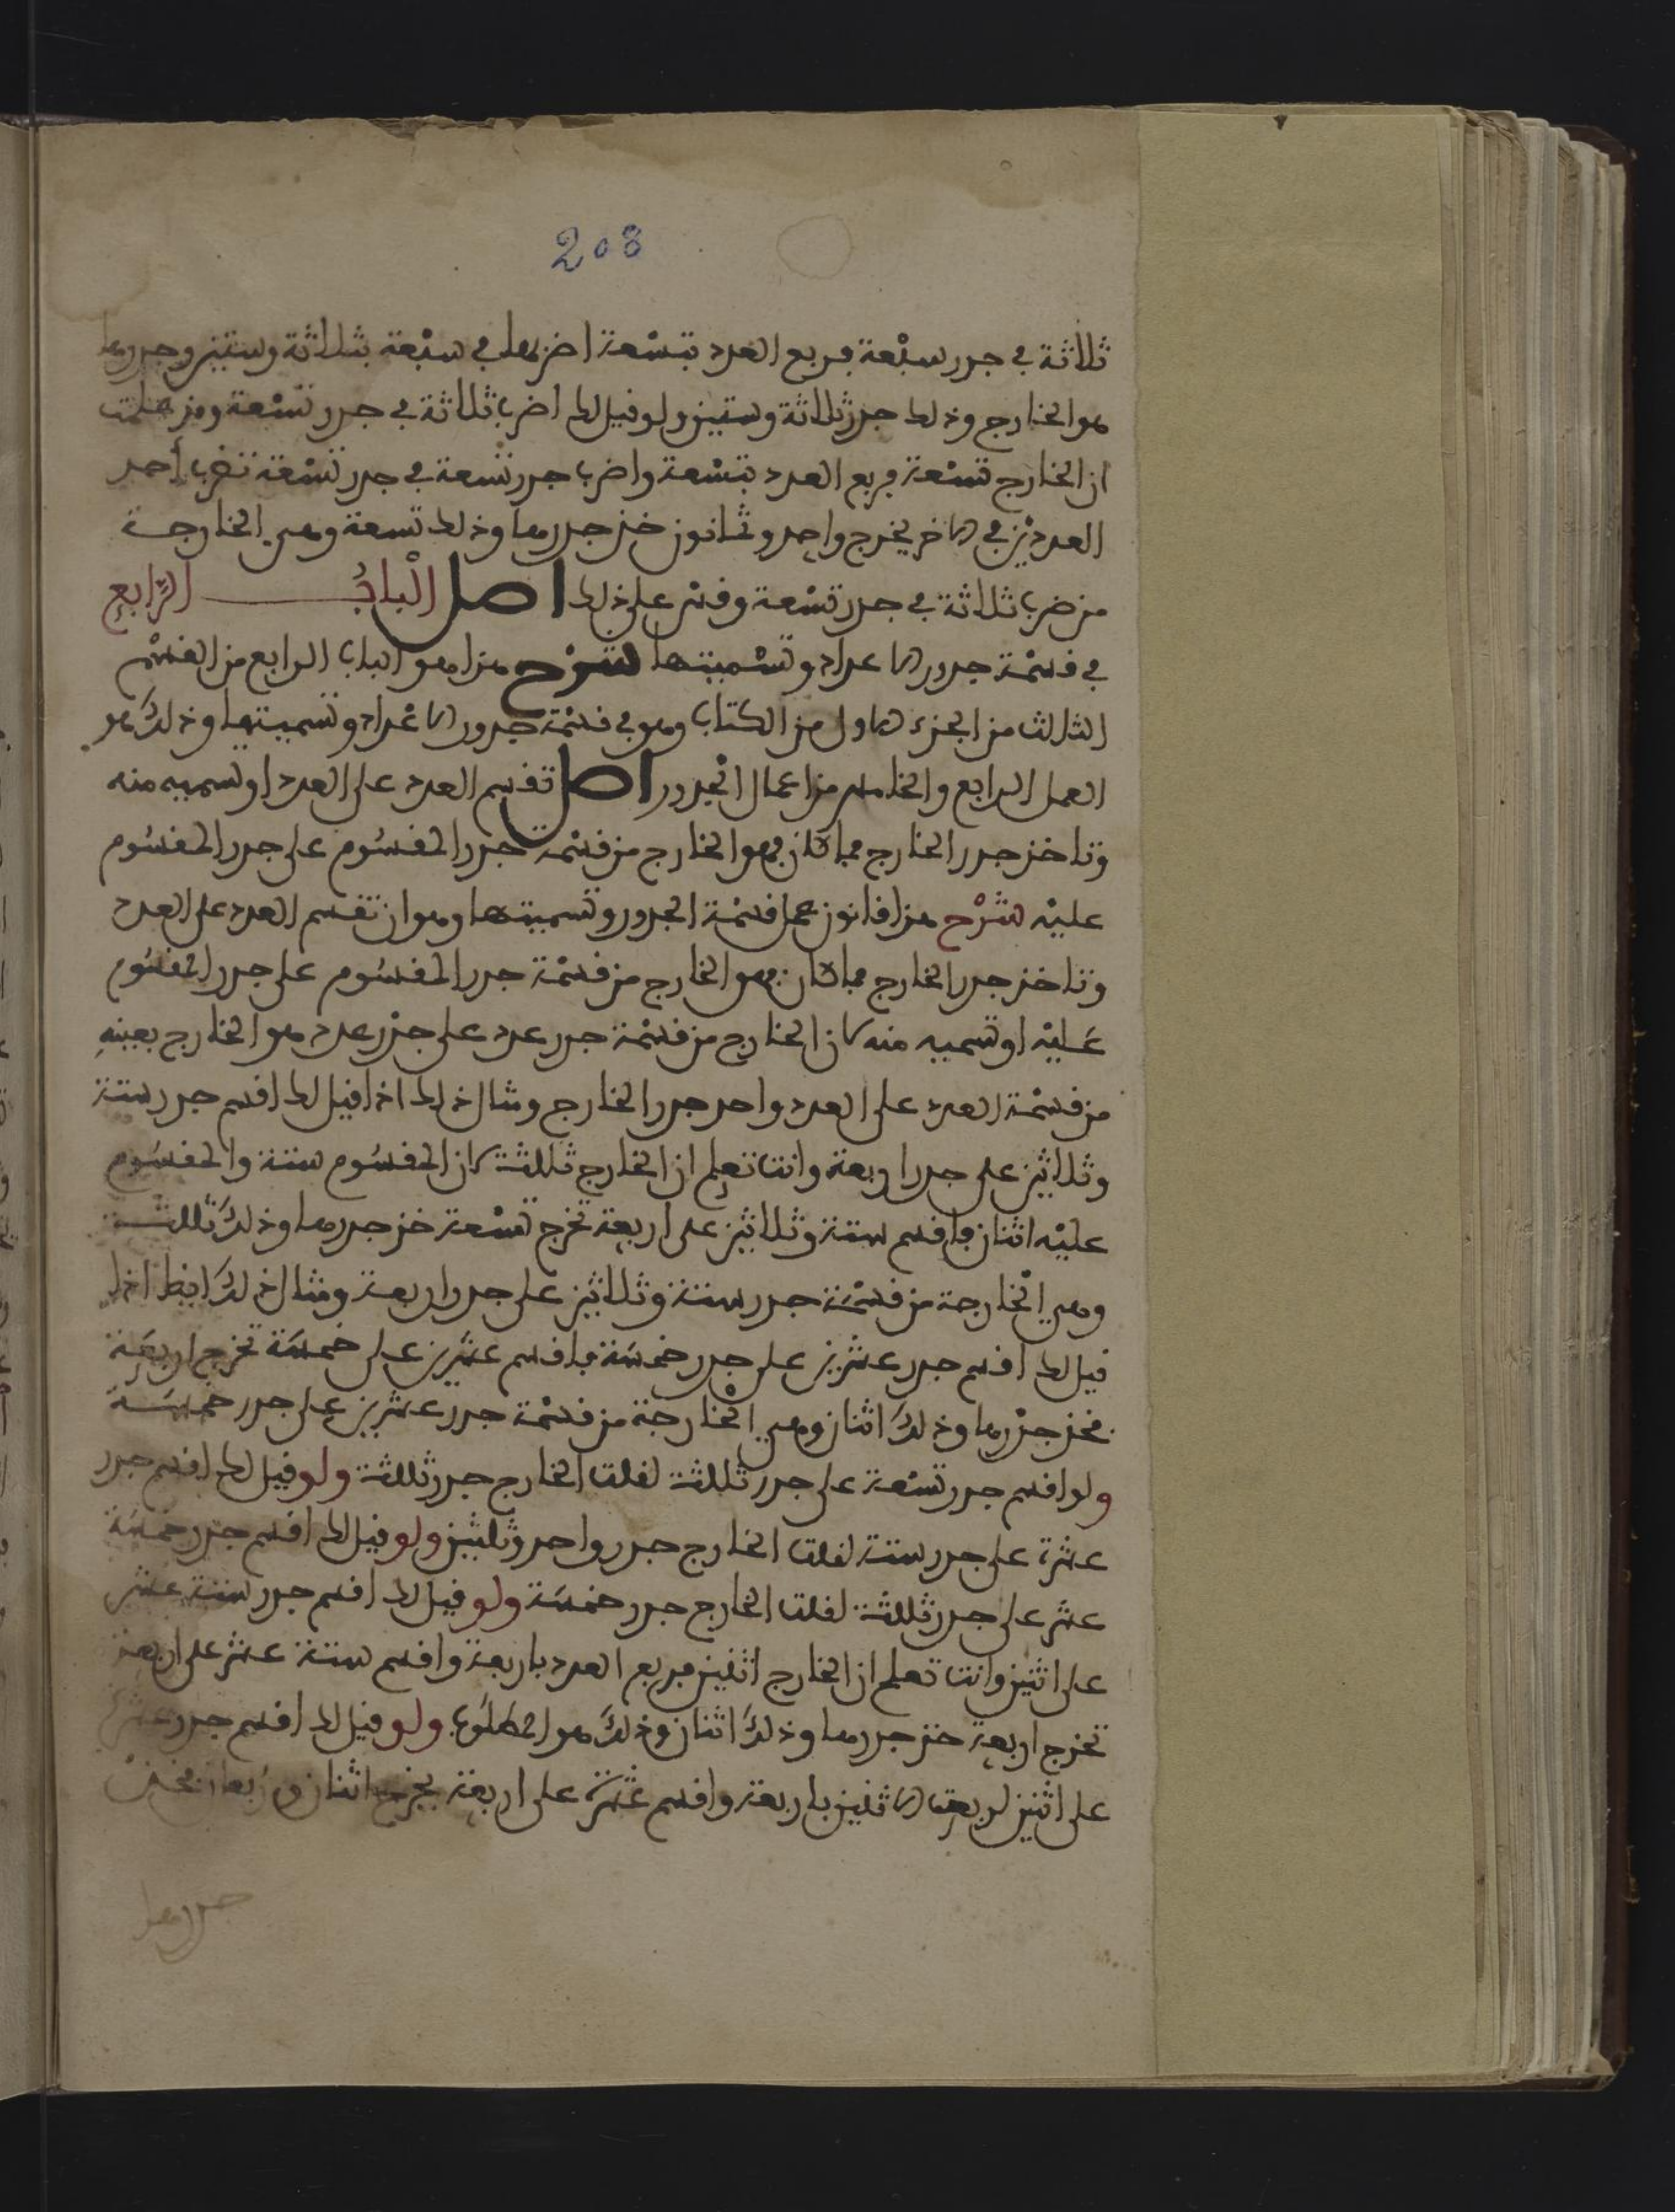 208
ثلاثة في جذر سبعة فربع العدد بتسعة اضربها في سبعة بثلاثة وستين وجذرها
هو الخارج وذلك جذر ثلاثة وستين ولو قيل لك اضرب ثلاثة في جذر تسعة ومن علمت
ان الخارج تسعة فربع العدد بتسعة واضرب جذر تسعة في جذر تسعة تضرب أحد
العددين في الاخر يخرج واحد وثمانون خذ جذرها وذلك تسعة وهي الخارجة
من ضرب ثلاثة في جذر تسعة وقس على ذلك اصل الْبابُ الرّابع
في قسْمة جذور الاعداد وتسْميتها شرْح هذا هو الباب الرابع من القسْم
الثالث من الجزء الاول من الكتاب وهو في قسْمة جذور الاعْداد وتسميتها وذلكَ هو
العمل الرابع والخامس من اعمال الجذور اصل تقسم العدد على العدد او تسميه منه
وتاخذ جذر الخارج فما كان فهو الخارج من قسْمة جذر المقسُوم على جذر المقسُوم
عليْه شرْح هذا قانون عمل قسْمة الجذور وتسميتها وهو ان تقسم العدد على العدد
وتاخذ جذر الخارج فما كان فهو الخارج من قسْمة جذر المقسُوم على جذر المقسُوم
عَليْه او تسميه منه لان الخارج من قسْمة جذر عدد على جذْر عدد هو الخارج بعينهِ
من قسْمة العدد على العدد واحد جذر الخارج ومثال ذلك اذا قيل لك اقسم جذر ستة
وثلاثين على جذر اربعة وانت تعلم ان الخارج ثلثة لان المقسُوم ستة والمقسُوم
عليْه اثنان فاقسم ستة وثلاثين على اربعة تخرج تسْعة خذ جذرها وذلكَ ثلثة
وهي الْخارجة من قسْمة جذر ستة وثلاثين على جذر اربعة ومثال ذلكَ ايضا اذا
قيل لك اقسم جذر عشرين على جذر خمسَة فاقسم عشرين على خمسَة تخرج اربعَة
فخذ جذْرها وذلكَ اثنان وهي الْخارجة من قسْمة جذر عشرين على جذر خمسَة
ولو اقسم جذر تسْعة على جذر ثلثة لقلت الخارج جذر ثلثة ولو قيل لك اقسم جذر
عشرة على جذر ستة لقلت الخارج جذر واحد وثلثين ولو قيل لك اقسم جذر خمسَة
عشر على جذر ثلثة لقلت الخارج جذر خمسَة ولو قيل لك اقسم جذر ستة عشر
على اثنين وانت تعلم ان الخارج اثنين فربع العدد باربعة واقسم ستة عشر على اربعة
تخرج اربعة خذ جذرها وذلكَ اثنان وذلكَ هو المطلُوب ولو قيل لك اقسم جذر عشرة
على اثنين لربعت الاثنين باربعة واقسم عَشرَة على اربعة يخرج اثنان ونصف فخذْ
جذرها